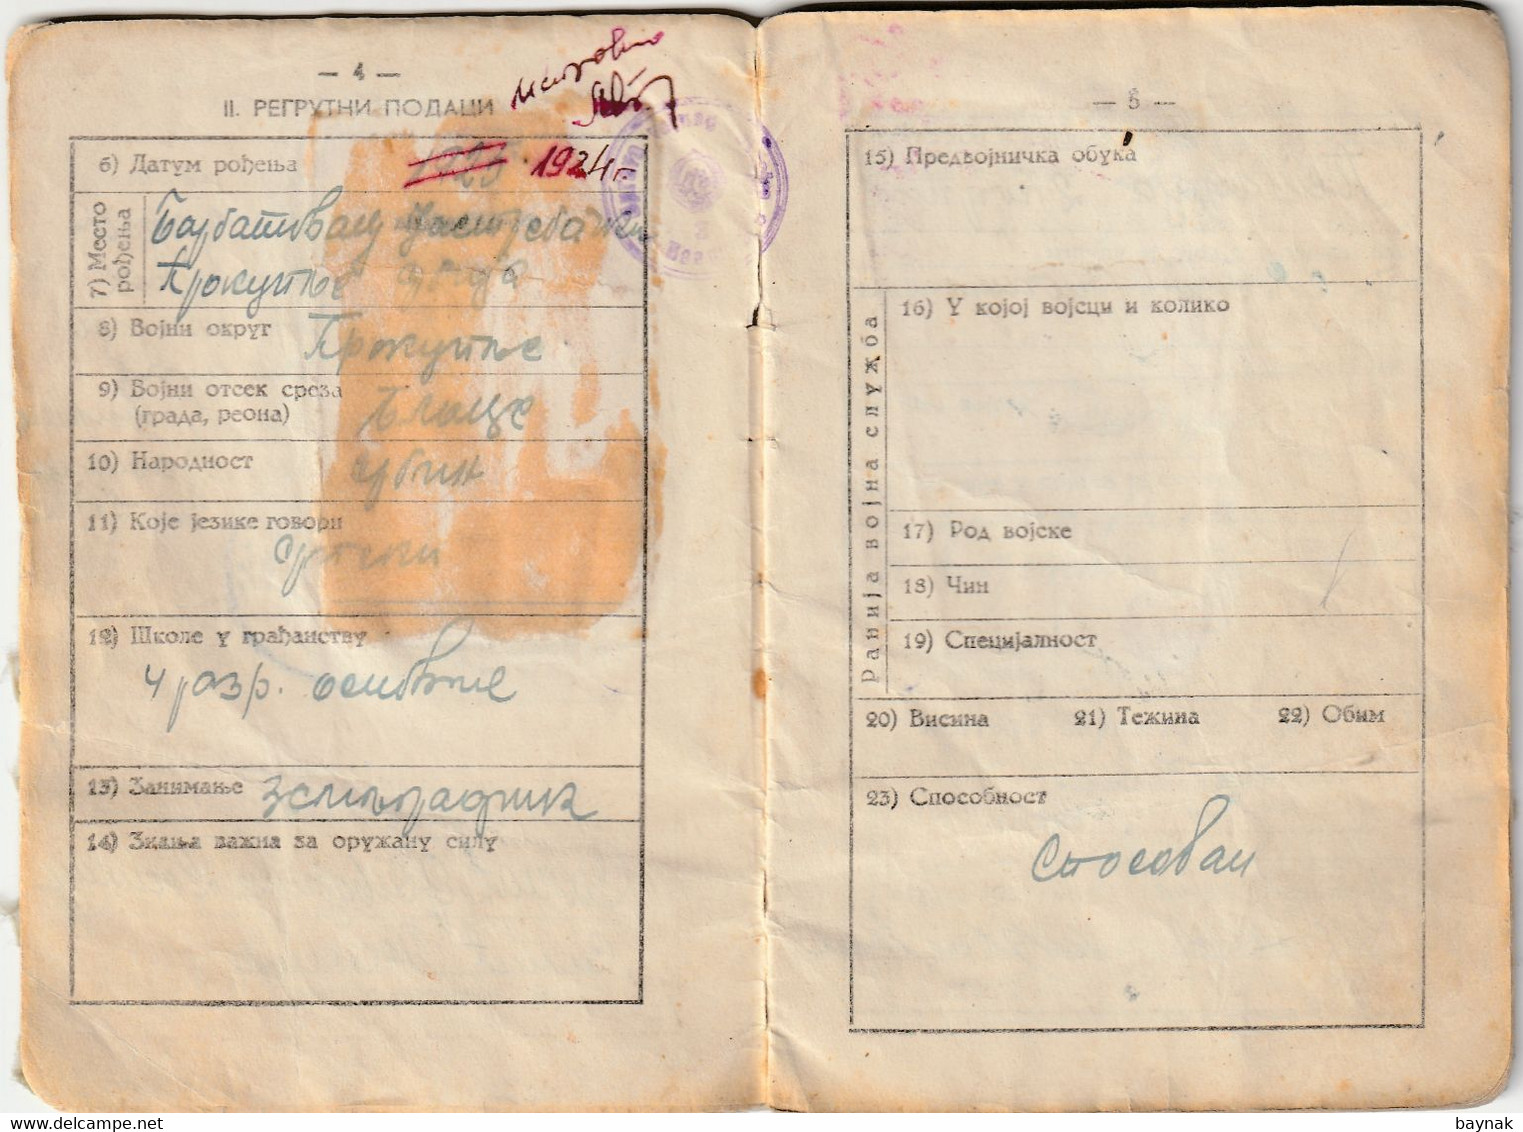 — 4 —
II. РЕГРУТНИ ПОДАЦИ
6) Датум рођења 1925 1924 г.
7) Место рођења
Прокупље
8) Војни округ Прокупље
9) Војни отсек среза
(града, реона) Блаце
10) Народност Србин
11) Које језике говори
Српски
12) Школе у грађанству
4 разр. основне
13) Занимање земљорадник
14) Знања важна за оружану силу
— 5 —
15) Предвојничка обука
Ранија војна служба
16) У којој војсци и колико
17) Род војске
18) Чин
19) Специјалност
20) Висина 21) Тежина 22) Обим
23) Способност
Способан
www.delcampe.net
baynak